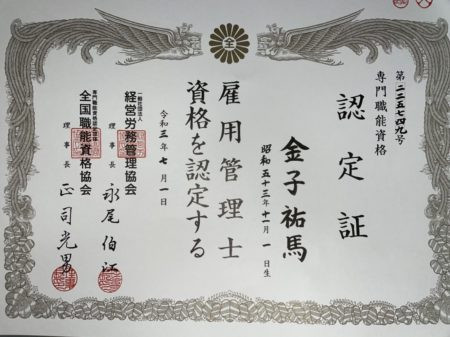 第二二五七四九号
専門職能資格
認定証
金子祐馬
昭和五十三年十一月一日生
雇用管理士
資格を認定する
令和三年七月一日
一般社団法人
経営労務管理協会
理事長 永尾伯江
専門職能資格認定団体
全国職能資格協会
理事長 正司光男